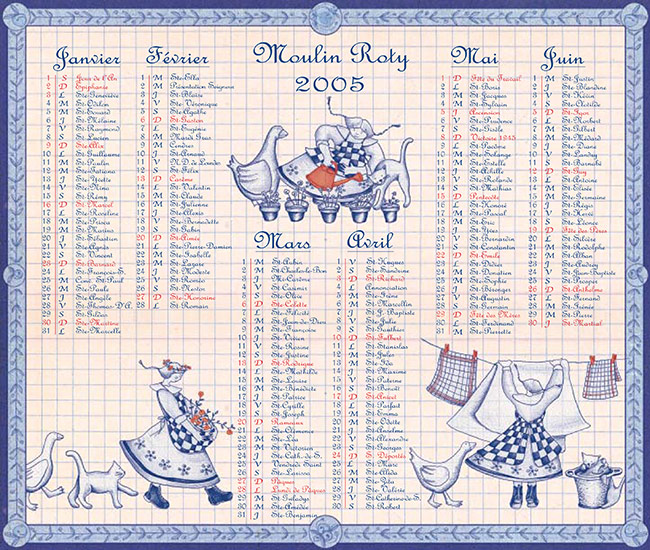 Janvier
1 S Jour de l'An
2 D Epiphanie
3 L Ste-Geneviève
4 M St-Odilon
5 M St-Edouard
6 J St-Mélaine
7 V St-Raymond
8 S St-Lucien
9 D Ste-Alix
10 L St-Guillaume
11 M St-Paulin
12 M Ste-Tatiana
13 J Ste-Yvette
14 V Ste-Nina
15 S St-Rémy
16 D St-Marcel
17 L Ste-Roseline
18 M Ste-Prisca
19 M St-Marius
20 J St-Sébastien
21 V Ste-Agnès
22 S St-Vincent
23 D St-Barnard
24 L St-François-S.
25 M Conv. St-Paul
26 M Ste-Paule
27 J Ste-Angèle
28 V St-Thomas D'A.
29 S St-Gildas
30 D Ste-Martine
31 L Ste-Marcelle
Février
1 M Ste-Ella
2 M Présentation Seigneur
3 J St-Blaise
4 V Ste-Véronique
5 S Ste-Agathe
6 D St-Gaston
7 L St-Eugénie
8 M Mardi Gras
9 M Cendres
10 J St-Arnaud
11 V N.D. de Lourdes
12 S St-Félix
13 D Carême
14 L St-Valentin
15 M St-Claude
16 M St-Julienne
17 J Ste-Alexis
18 V Ste-Bernadette
19 S St-Gabin
20 D St-Aimée
21 L Ste-Pierre-Damien
22 M Ste-Isabelle
23 M St-Lazare
24 J St-Modeste
25 V St-Roméo
26 S St-Nestor
27 D Ste-Honorine
28 L St-Romain
Moulin Roty
2005
Mars
1 M St-Aubin
2 M St-Charles-le-Bon
3 J Mi-Carême
4 V St-Casimir
5 S Ste-Olive
6 D Ste-Colette
7 L Ste-Félicité
8 M St-Jean-de-Dieu
9 M Ste-Françoise
10 J St-Vivien
11 V Ste-Rosine
12 S Ste-Justine
13 D St-Rodrigue
14 L Ste-Mathilde
15 M Ste-Louise
16 M Ste-Bénédicte
17 J St-Patrice
18 V St-Cyrille
19 S St-Joseph
20 D Rameaux
21 L Ste-Clémence
22 M Ste-Léa
23 M St-Victorien
24 J Ste-Cath. de S.
25 V Vendredi Saint
26 S Ste-Larissa
27 D Pâques
28 L Lundi de Pâques
29 M St-Gladys
30 M Ste-Amédée
31 J Ste-Benjamin
Avril
1 V St-Hugues
2 S Ste-Sandrine
3 D St-Richard
4 L Annonciation
5 M Ste-Irène
6 M St-Marcellin
7 J St-J. Baptiste
8 V Ste-Julie
9 S St-Gauthier
10 D St-Fulbert
11 L St-Stanislas
12 M St-Jules
13 M Ste-Ida
14 J St-Maxime
15 V St-Paterne
16 S St-Benoît
17 D St-Anicet
18 L St-Parfait
19 M Ste-Emma
20 M Ste-Odette
21 J St-Anselme
22 V Ste-Alexandre
23 S St-Georges
24 D S. Déportés
25 L St-Marc
26 M Ste-Alida
27 M Ste-Zita
28 J Ste-Valérie
29 V St-Catherine-de-S.
30 S St-Robert
Mai
1 D Fête du Travail
2 L St-Boris
3 M St-Jacques
4 M St-Sylvain
5 J Ascension
6 V Ste-Prudence
7 S Ste-Gisèle
8 D Victoire 1945
9 L St-Pacôme
10 M Ste-Solange
11 M Ste-Estelle
12 J St-Achille
13 V Ste-Rolande
14 S St-Mathias
15 D Pentecôte
16 L St-Honoré
17 M Ste-Pascal
18 M St-Eric
19 J St-Yves
20 V St-Bernardin
21 S St-Constantin
22 D St-Emile
23 L St-Didier
24 M St-Donatien
25 M Ste-Sophie
26 J St-Bérenger
27 V St-Augustin
28 S St-Germain
29 D Fête des Mères
30 L St-Ferdinand
31 M St-Pierrette
Juin
1 M St-Justin
2 J Ste-Blandine
3 V St-Kévin
4 S Ste-Clotilde
5 D St-Igor
6 L St-Norbert
7 M St-Gilbert
8 M St-Médard
9 J Ste-Diane
10 V St-Landry
11 S St-Barnabé
12 D St-Guy
13 L St-Antoine
14 M St-Elisée
15 M Ste-Germaine
16 J St-Régis
17 V St-Hervé
18 S Ste-Léonce
19 D Fête des Pères
20 L St-Silvère
21 M St-Rodolphe
22 M St-Alban
23 J Ste-Audrey
24 V St-Jean-Baptiste
25 S St-Prosper
26 D St-Anthelme
27 L St-Fernand
28 M St-Irénée
29 M St-Pierre
30 J St-Martial